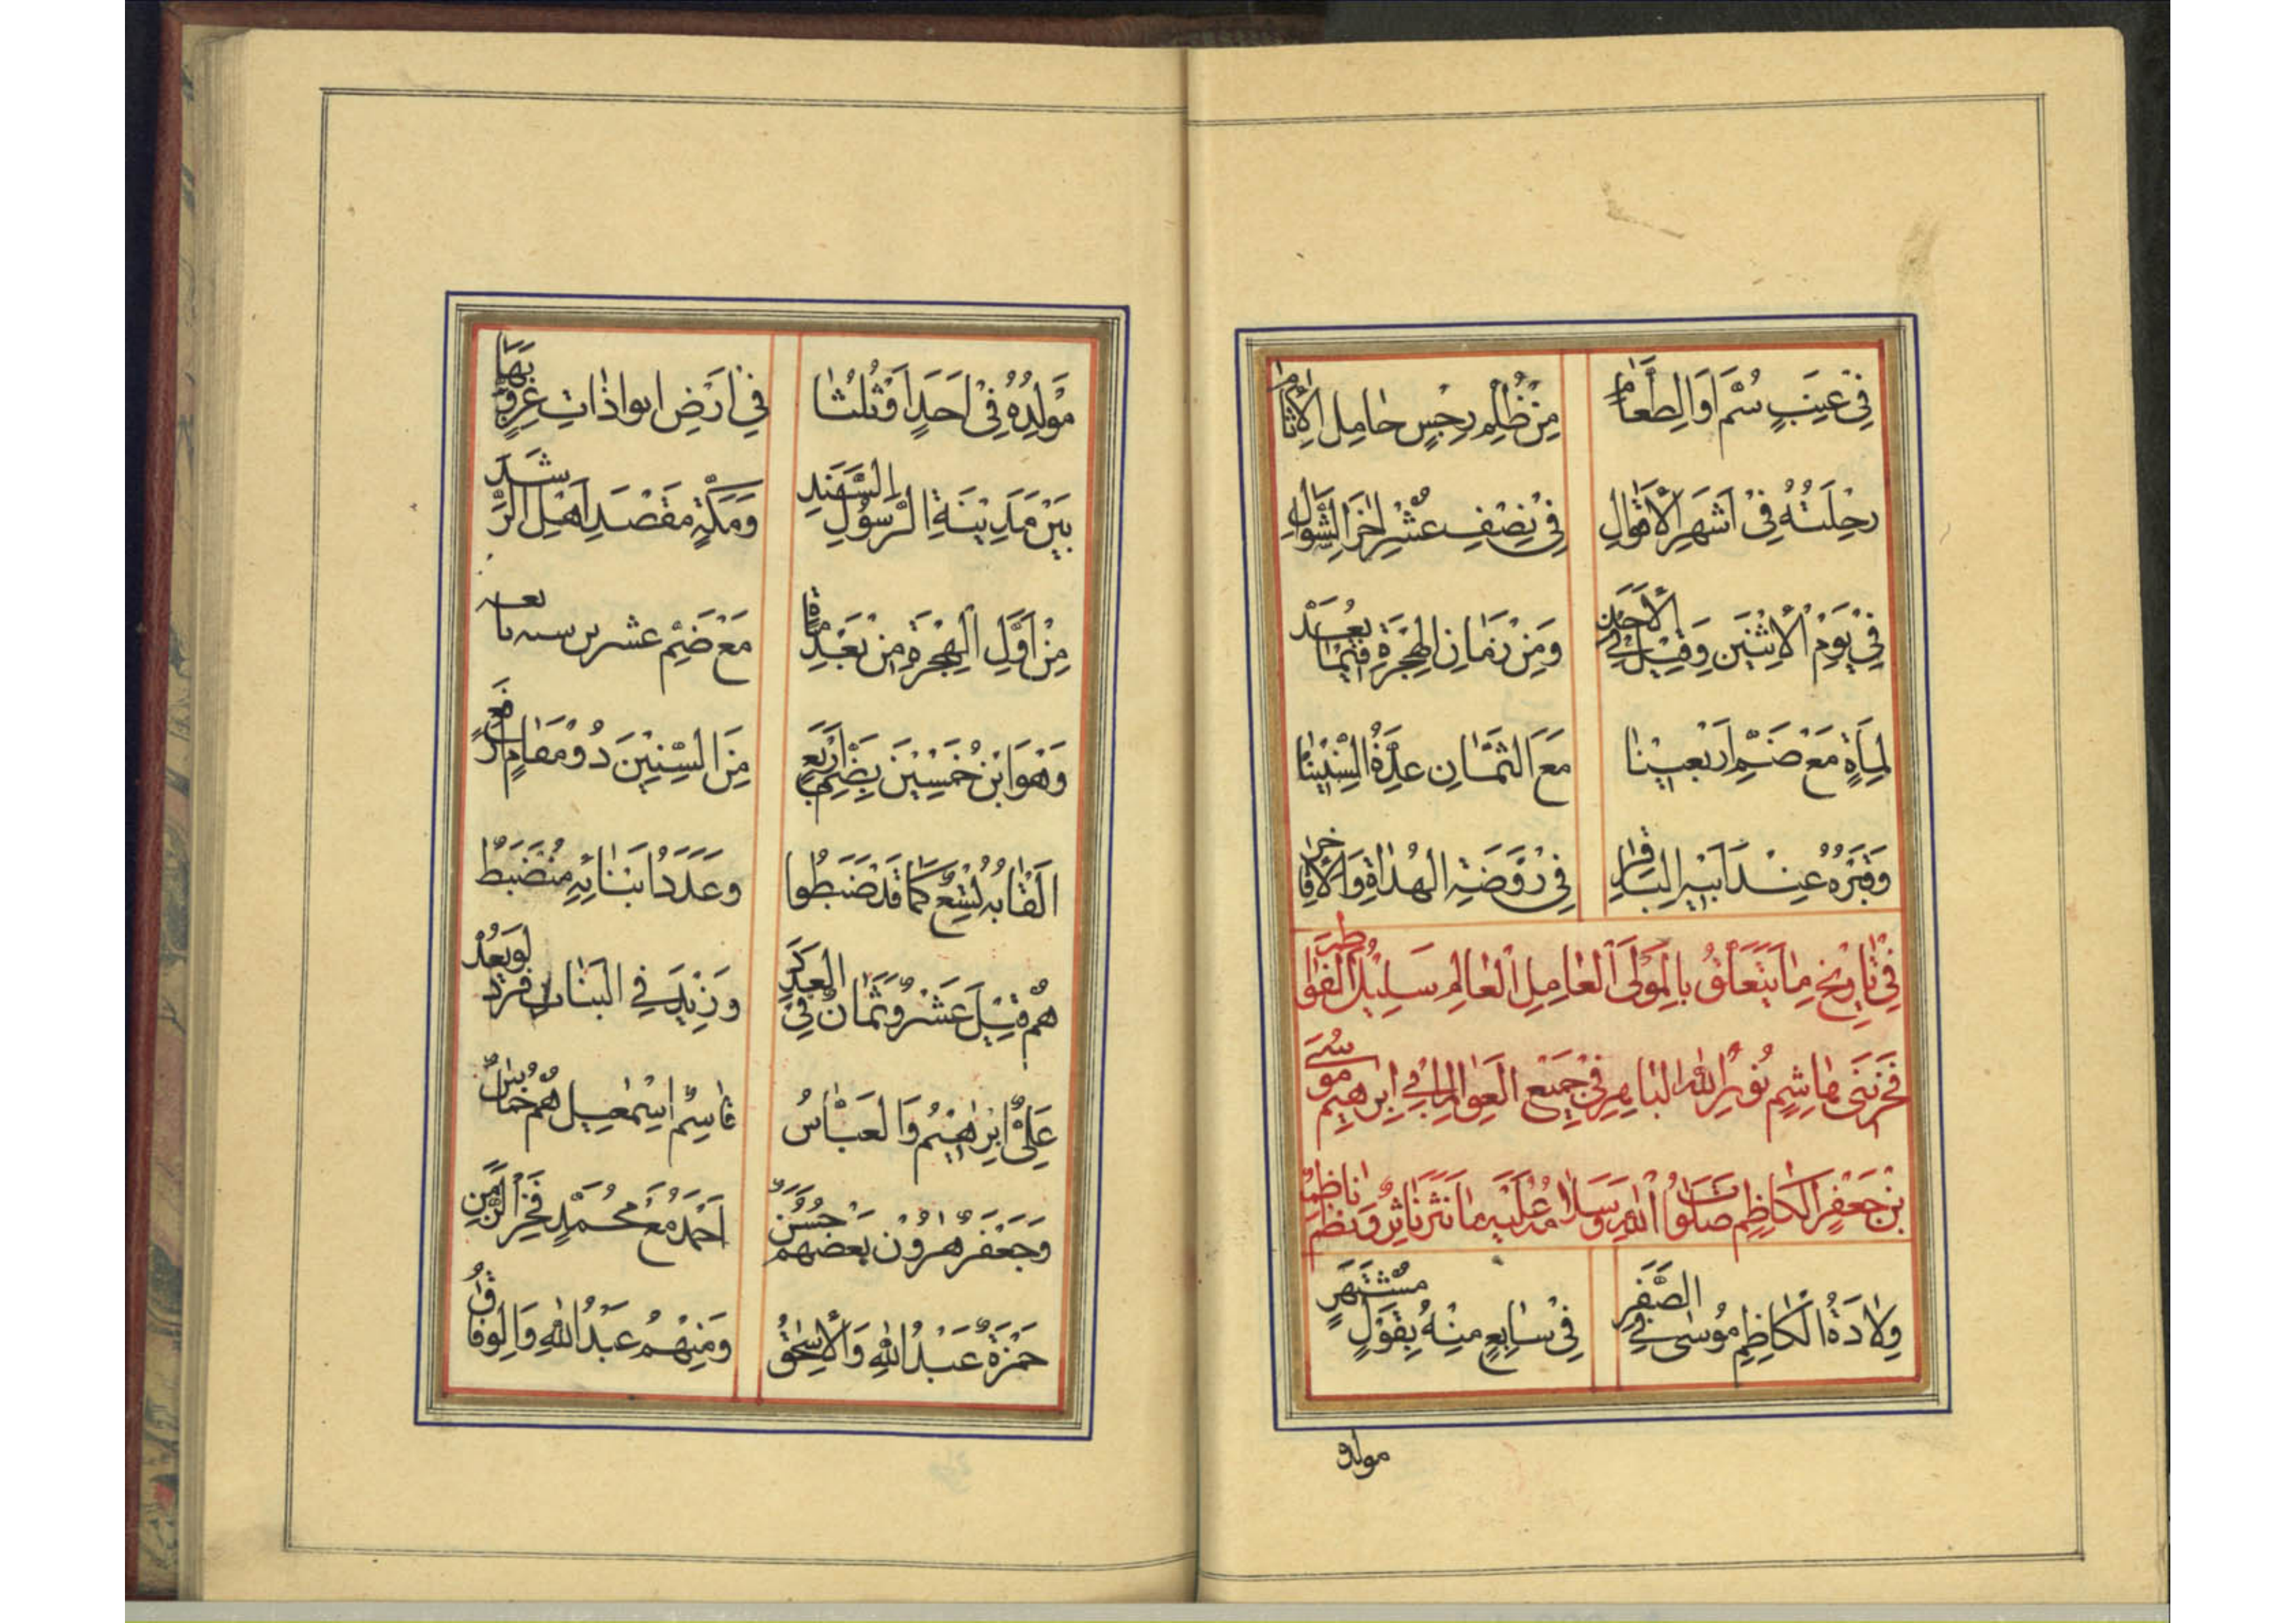 فِي عِنَبٍ سُمَّ اَوِ الطَّعَامِ مِنْ ظُلْمِ رِجْسٍ حَامِلِ الْاٰثَامِ
رِحْلَتُهُ فِي اَشْهَرِ الْاَقْوَالِ فِي نِصْفِ عُشْرٍ اٰخَرَ الشَّوَّالِ
فِي يَوْمِ الْاِثْنَيْنِ وَقِيلَ فِي الْاَحَدِ وَمِنْ زَمَانِ الْهِجْرَةِ فِيمَا بَعْدُ
لِمِاَةٍ مَعْ ضَمِّ اَرْبَعِينَا مَعَ الثَّمَانِ عِدَّةُ السِّنِينَا
وَقَبْرُهُ عِنْدَ اَبِيهِ الْبَاقِرِ فِي رَوْضَةِ الْهُدَاةِ وَالْاَفَاخِرِ
فِي تَارِيخِ مَا يَتَعَلَّقُ بِالْمَوْلَى الْعَامِلِ الْعَالِمِ سَلِيلُ الْفَوَاطِمِ
فَخْرِ بَنِي هَاشِمٍ نُورِ اللهِ الْبَاهِرِ فِي جَمِيعِ الْعَوَالِمِ اَبِي اِبْرٰهِيمَ مُوسٰى
بْنِ جَعْفَرٍ الْكَاظِمِ صَلَوَاتُ اللهِ وَسَلَامُهُ عَلَيْهِ مَا نَثَرَ نَاثِرٌ وَنَظَمَ نَاظِمٌ
وِلَادَةُ الْكَاظِمِ مُوسٰى فِي الصَّفَرِ فِي سَابِعٍ مِنْهُ بِقَوْلٍ مُشْتَهَرٍ
مولده
مَوْلِدُهُ فِي اَحَدٍ اَوْ ثُلَثَا فِي اَرْضِ ابواذَاتِ
بَيْنَ مَدِينَةِ الرَّسُولِ السَّنَدِ وَمَكَّةٍ مَقْصَدِ اَهْلِ الرَّشَدِ
مِنْ اَوَّلِ الْهِجْرَةِ مِنْ بَعْدِ مِاَةٍ مَعْ ضَمِّ عشرين
وَهْوَ ابْنُ خَمْسِينَ بِضَمِّ اَرْبَعٍ مِنَ السِّنِينَ ذُو مَقَامٍ اَرْفَعٍ
اَلْقَابُهُ تِسْعٌ كَمَا قَدْ ضَبَطُوا وَعَدَدُ اَبْنَائِهِ مُنْضَبِطُ
هُمْ قِيلَ عَشْرٌ وَثَمَانٌ فِي الْعَدَدِ وَزِيدَ فِي الْبَنَاتِ فَرْدٌ لَوْ يُعَدْ
عَلِيٌّ اِبْرٰهِيمُ وَالْعَبَّاسُ قَاسِمٌ اِسْمٰعِيلُ هُمْ خُمَاسٌ
وَجَعْفَرٌ هٰرُونُ بَعْضُهُمْ حَسَنْ اَحْمَدُ مَعْ مُحَمَّدٍ فَخْرِ الزَّمَنِ
حَمْزَةُ عَبْدُ اللهِ وَالْاِسْحٰقُ وَمِنْهُمُ عَبْدُ اللهِ